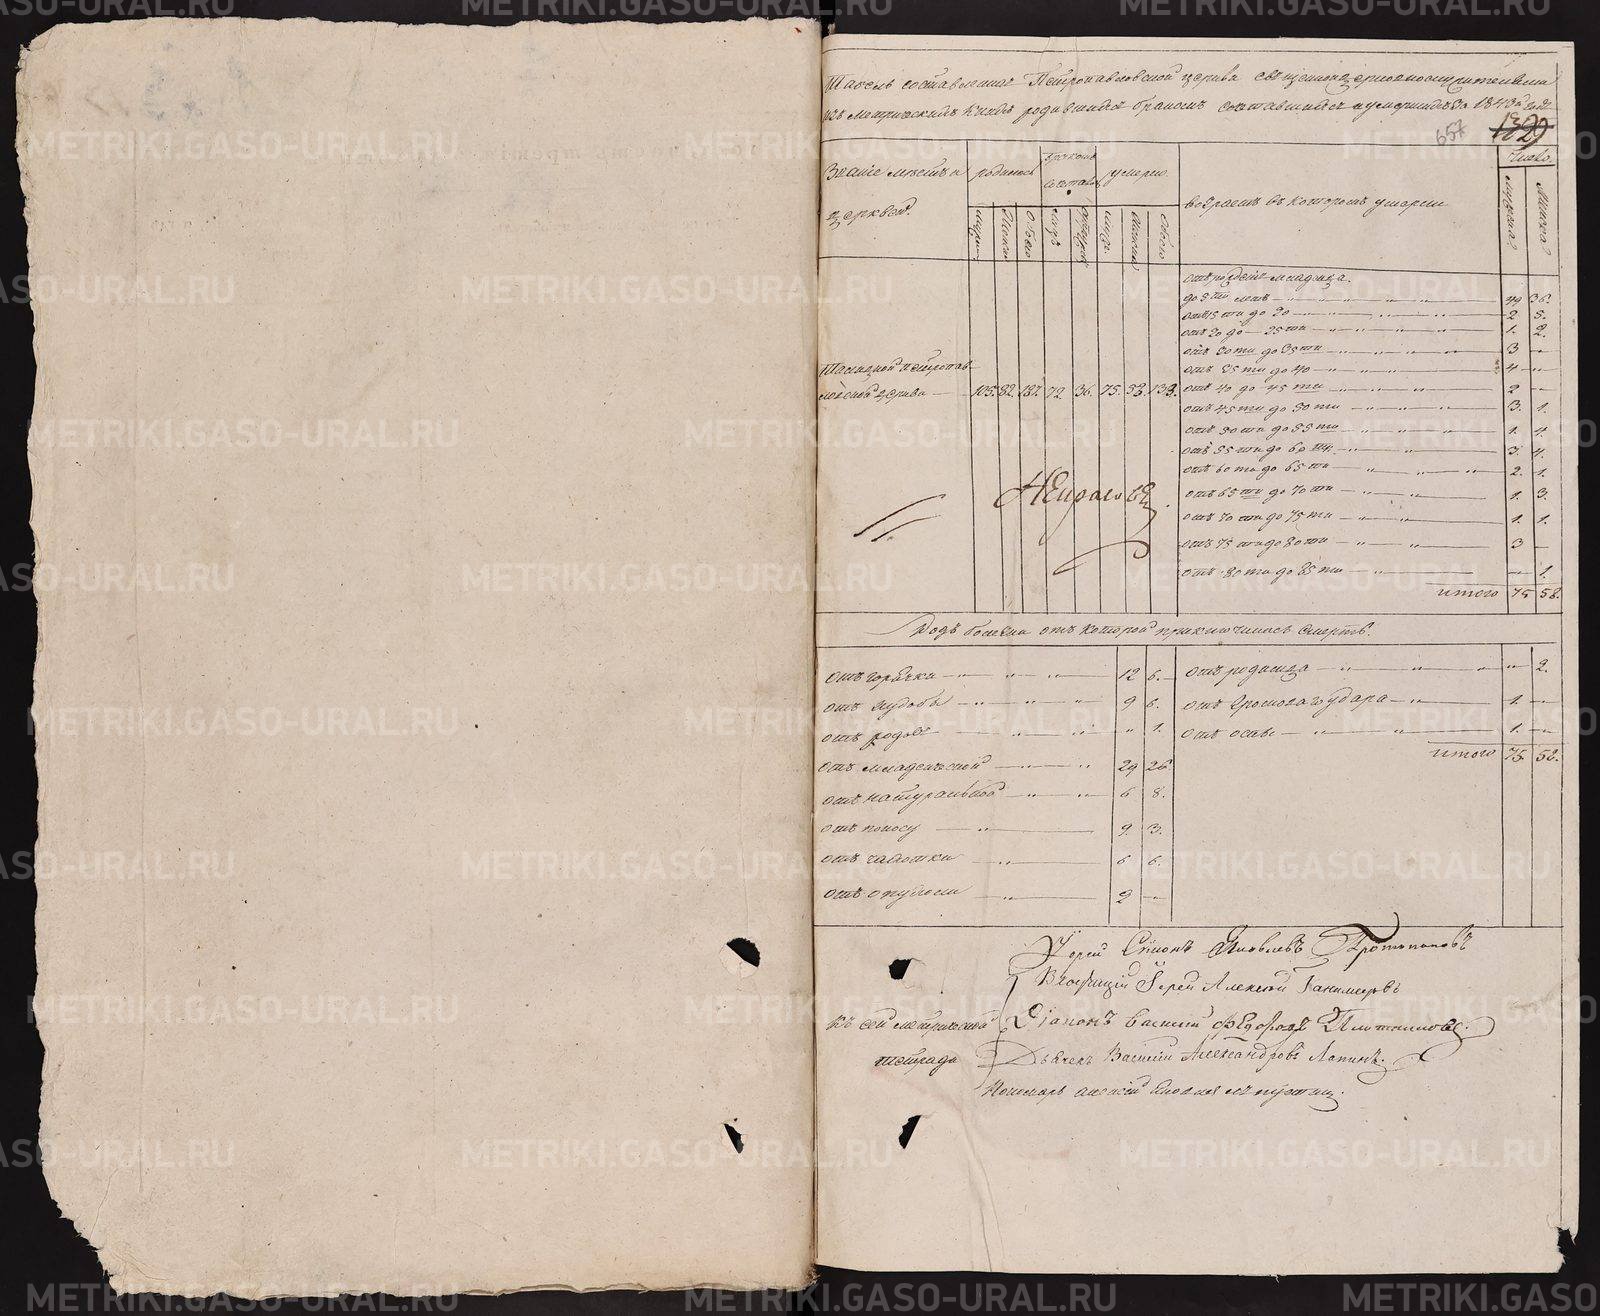 Табель составленная Петропавловской церкви священноцерковнослужителями
изъ метрическихъ книгъ родившихся бракомъ сочетавшихся и умершихъ за 1843й годъ
657 1329
Званіе мѣстъ и церквей.
родилось
бракомъ сочетал.
умерло.
возрастъ въ которомъ умерли
Число.
мужеска?
Женска?
мужск.
Женск.
обоего
обоего
отъ рожденія младенца
до 5ти лѣтъ 49 36.
отъ 15ти до 20 2 5.
отъ 20 до 25ти 1. 2.
отъ 30ти до 35ти 3 —
отъ 35ти до 40 4 —
отъ 40 до 45ти 2 —
отъ 45ти до 50ти 3. 1.
отъ 50ти до 55ти 1. 4.
отъ 55ти до 60ти 3. 4.
отъ 60ти до 65ти 2. 1.
отъ 65ти до 70ти 1. 3.
отъ 70ти до 75ти 1. 1.
отъ 75ти до 80ти 3 —
отъ 80ти до 85ти — 1.
итого 75 58.
Петропавловской церкви 105. 82. 187. 72 36. 75. 58. 133.
Родъ болѣзни отъ которой приключилась смерть.
отъ горячки 12 6.
отъ худобы 9 6.
отъ родовъ " 1.
отъ младенческой 29 26
отъ натуральной 6 8.
отъ поносу 9. 3.
отъ чахотки 6 6.
отъ опухоли 2 —
отъ родимца " 2.
отъ громоваго удара 1. —
отъ оспы 1. —
итого 75. 58.
къ сей метрической
тетради
Іерей Сѵмонъ Яковлевъ Протопоповъ
Іерей Алексѣй
Діаконъ Василій Федоровъ
Дьячекъ Василій Александровъ Лапинъ.
Пономарь
METRIKI.GASO-URAL.RU